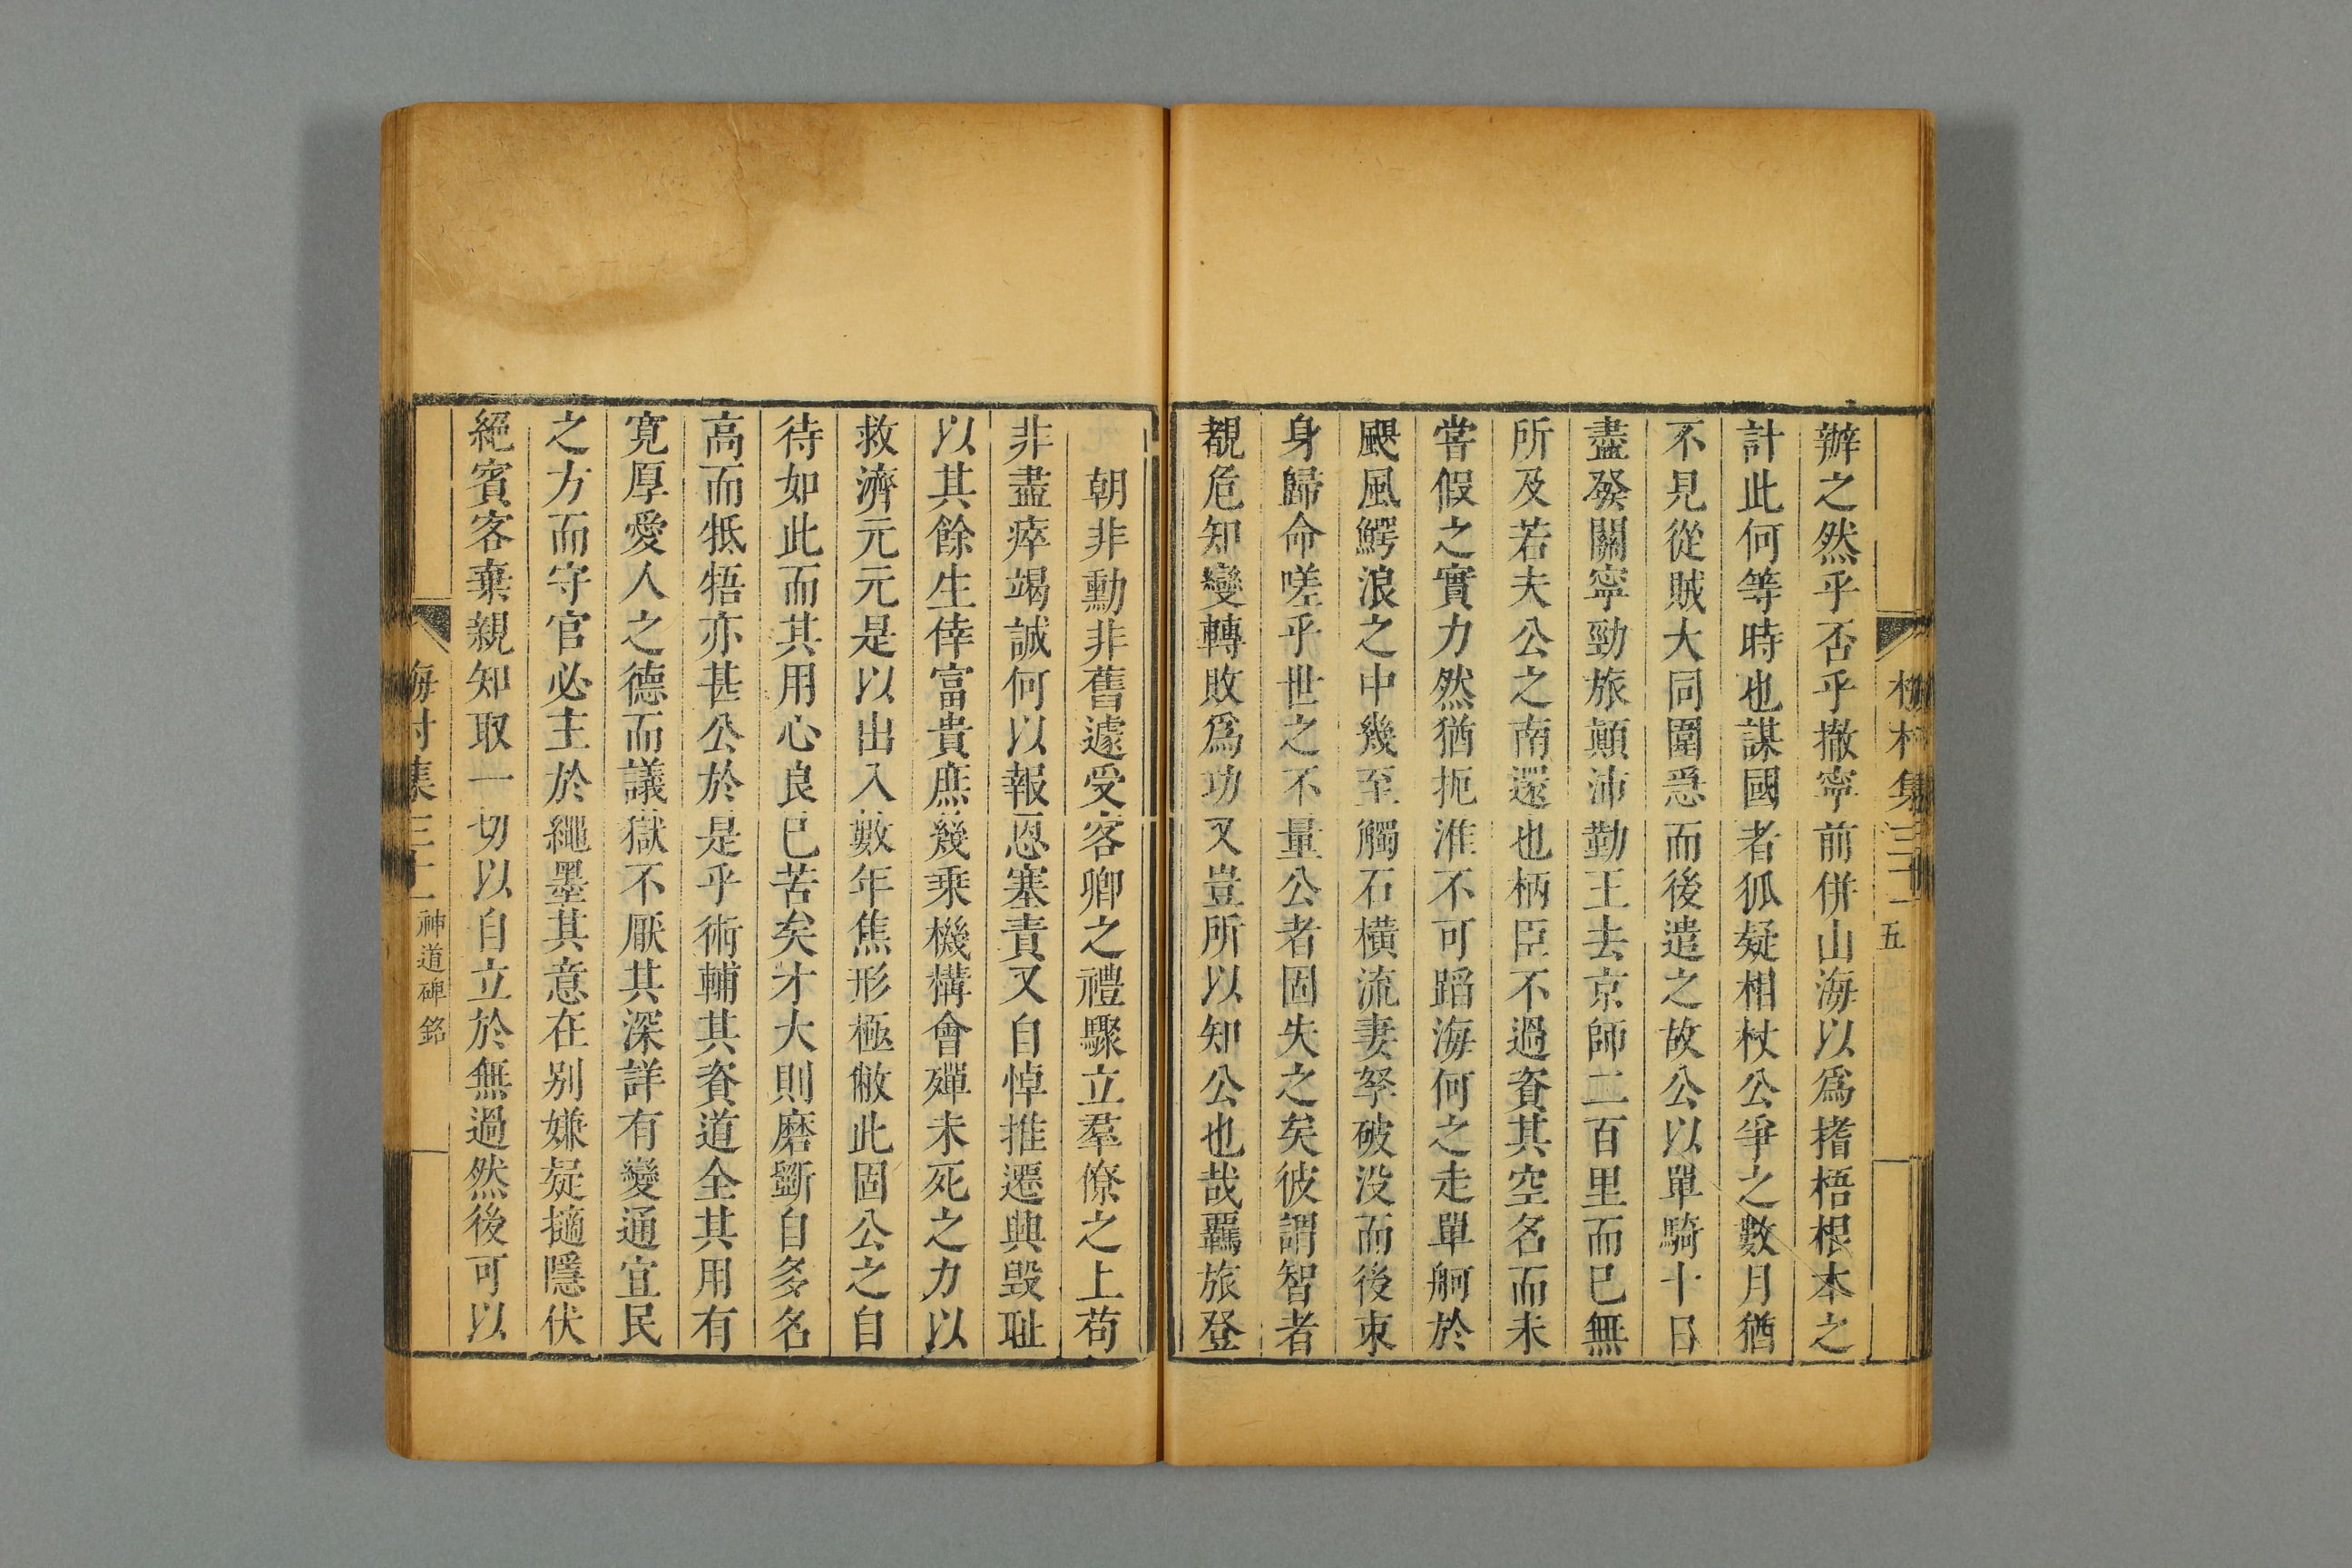 五
辦之然乎否乎撤寧前併山海以爲撘梧根本之
計此何等時也謀國者狐疑相杖公爭之數月猶
不見從賊大同圍急而後遣之故公以單騎十日
盡發關寧勁旅顛沛勤王去京師二百里而已無
所及若夫公之南還也柄臣不過資其空名而未
嘗假之實力然猶扼淮不可蹈海何之走單舸於
颶風鰐浪之中幾至觸石橫流妻孥破没而後束
身歸命嗟乎世之不量公者固失之矣彼謂智者
覩危知變轉敗爲功又豈所以知公也哉羈旅登
朝非勳非舊遽受客卿之禮驟立羣僚之上苟
非盡瘁竭誠何以報恩塞責又自悼推遷與毁耻
以其餘生倖富貴庶幾乘機構會殫未死之力以
救濟元元是以出入數年焦形極敝此固公之自
待如此而其用心良已苦矣才大則磨斵自多名
高而牴牾亦甚公於是乎術輔其資道全其用有
寛厚愛人之德而議獄不厭其深詳有變通宜民
之方而守官必主於繩墨其意在别嫌疑擿隱伏
絕賓客棄親知取一切以自立於無過然後可以
神道碑銘